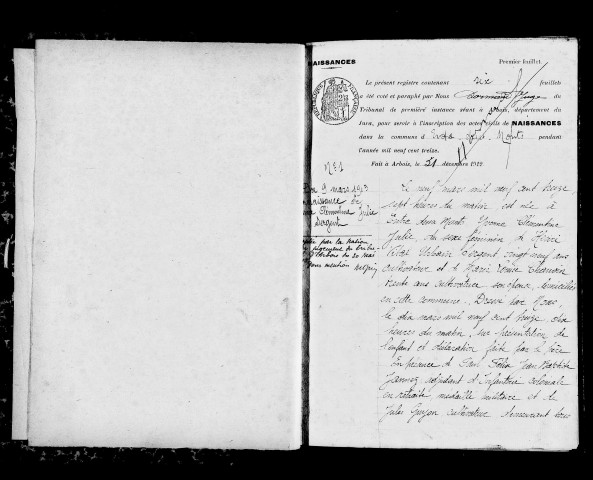 NAISSANCES
Premier feuillet.
Le présent registre contenant six feuillets
a été coté et paraphé par Nous Juge du
Tribunal de première instance séant à Arbois, département du
Jura, pour servir à l'inscription des actes civils de NAISSANCES
dans la commune d'Entre-deux-Monts pendant
l'année mil neuf cent treize.
Fait à Arbois, le 21 décembre 1912
N° 1
9 mars 1913
naissance de
Clémentine Julie
Sergent
par la Nation
jugement du tribu
d'Arbois du 20 mai
pour mention
Le neuf mars mil neuf cent treize,
sept heures du matin est née à
Entre deux Monts Yvonne Clémentine
Julie, du sexe féminin de
Urbain Sergent vingt neuf ans
cultivateur et de Marie
trente ans cultivatrice son épouse, domiciliés
en cette commune. Dressé par Nous,
le dix mars mil neuf cent treize, dix
heures du matin, sur présentation de
l'enfant et déclaration faite par le père
En présence de Paul Félix Jean Baptiste
Jannez adjudant d'Infanterie coloniale
en retraite médaillé militaire et de
Jules Guyon cultivateur demeurant tous